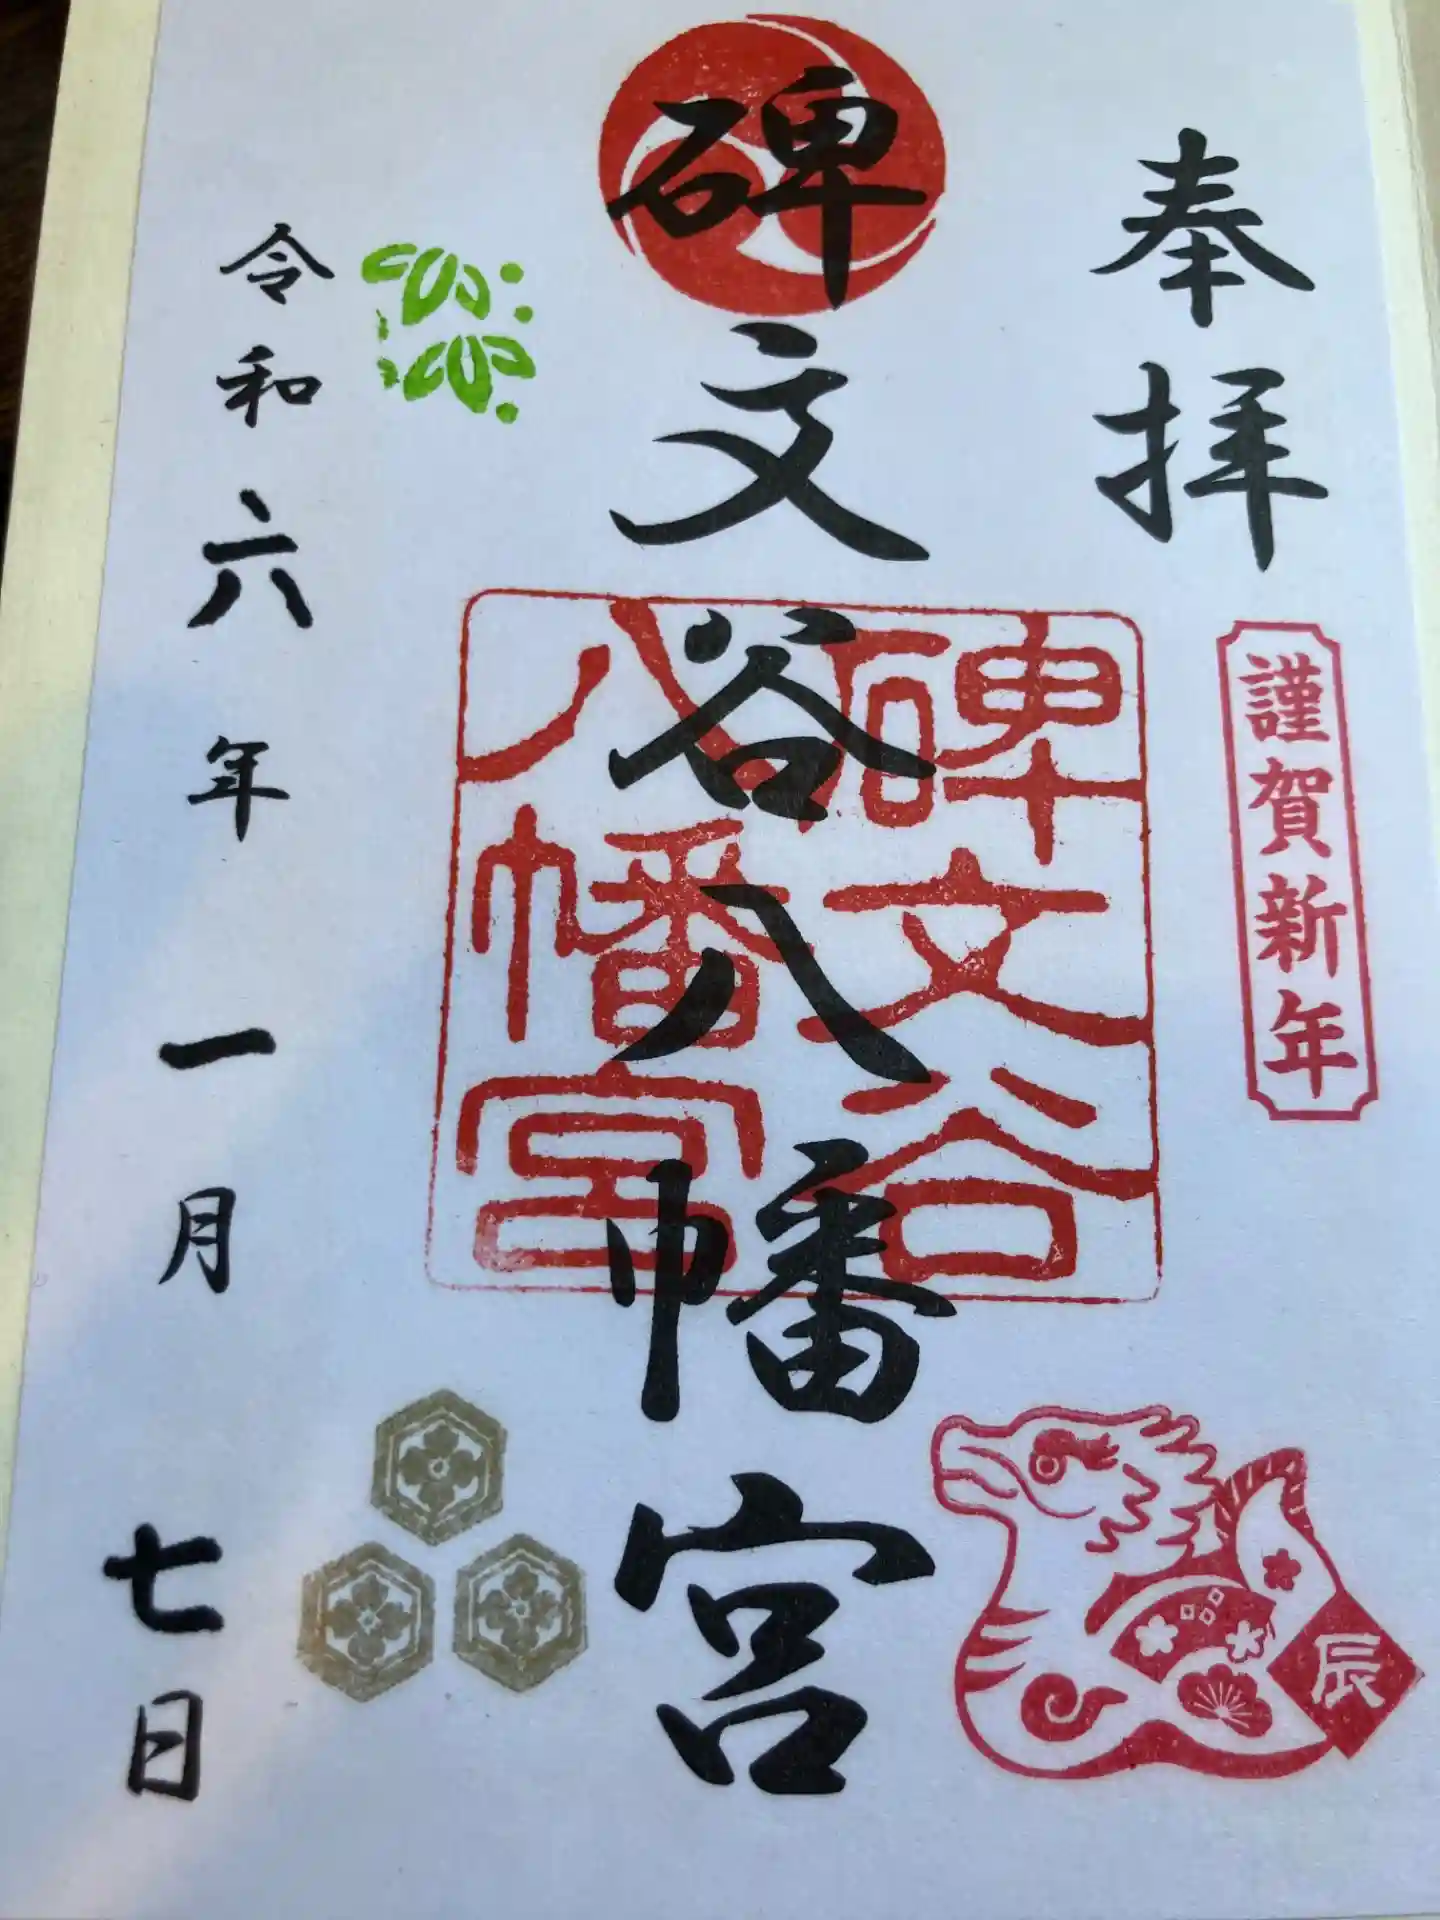 奉拝
謹賀新年
辰
碑文谷八幡宮
碑文谷
八幡宮
令和六年一月七日